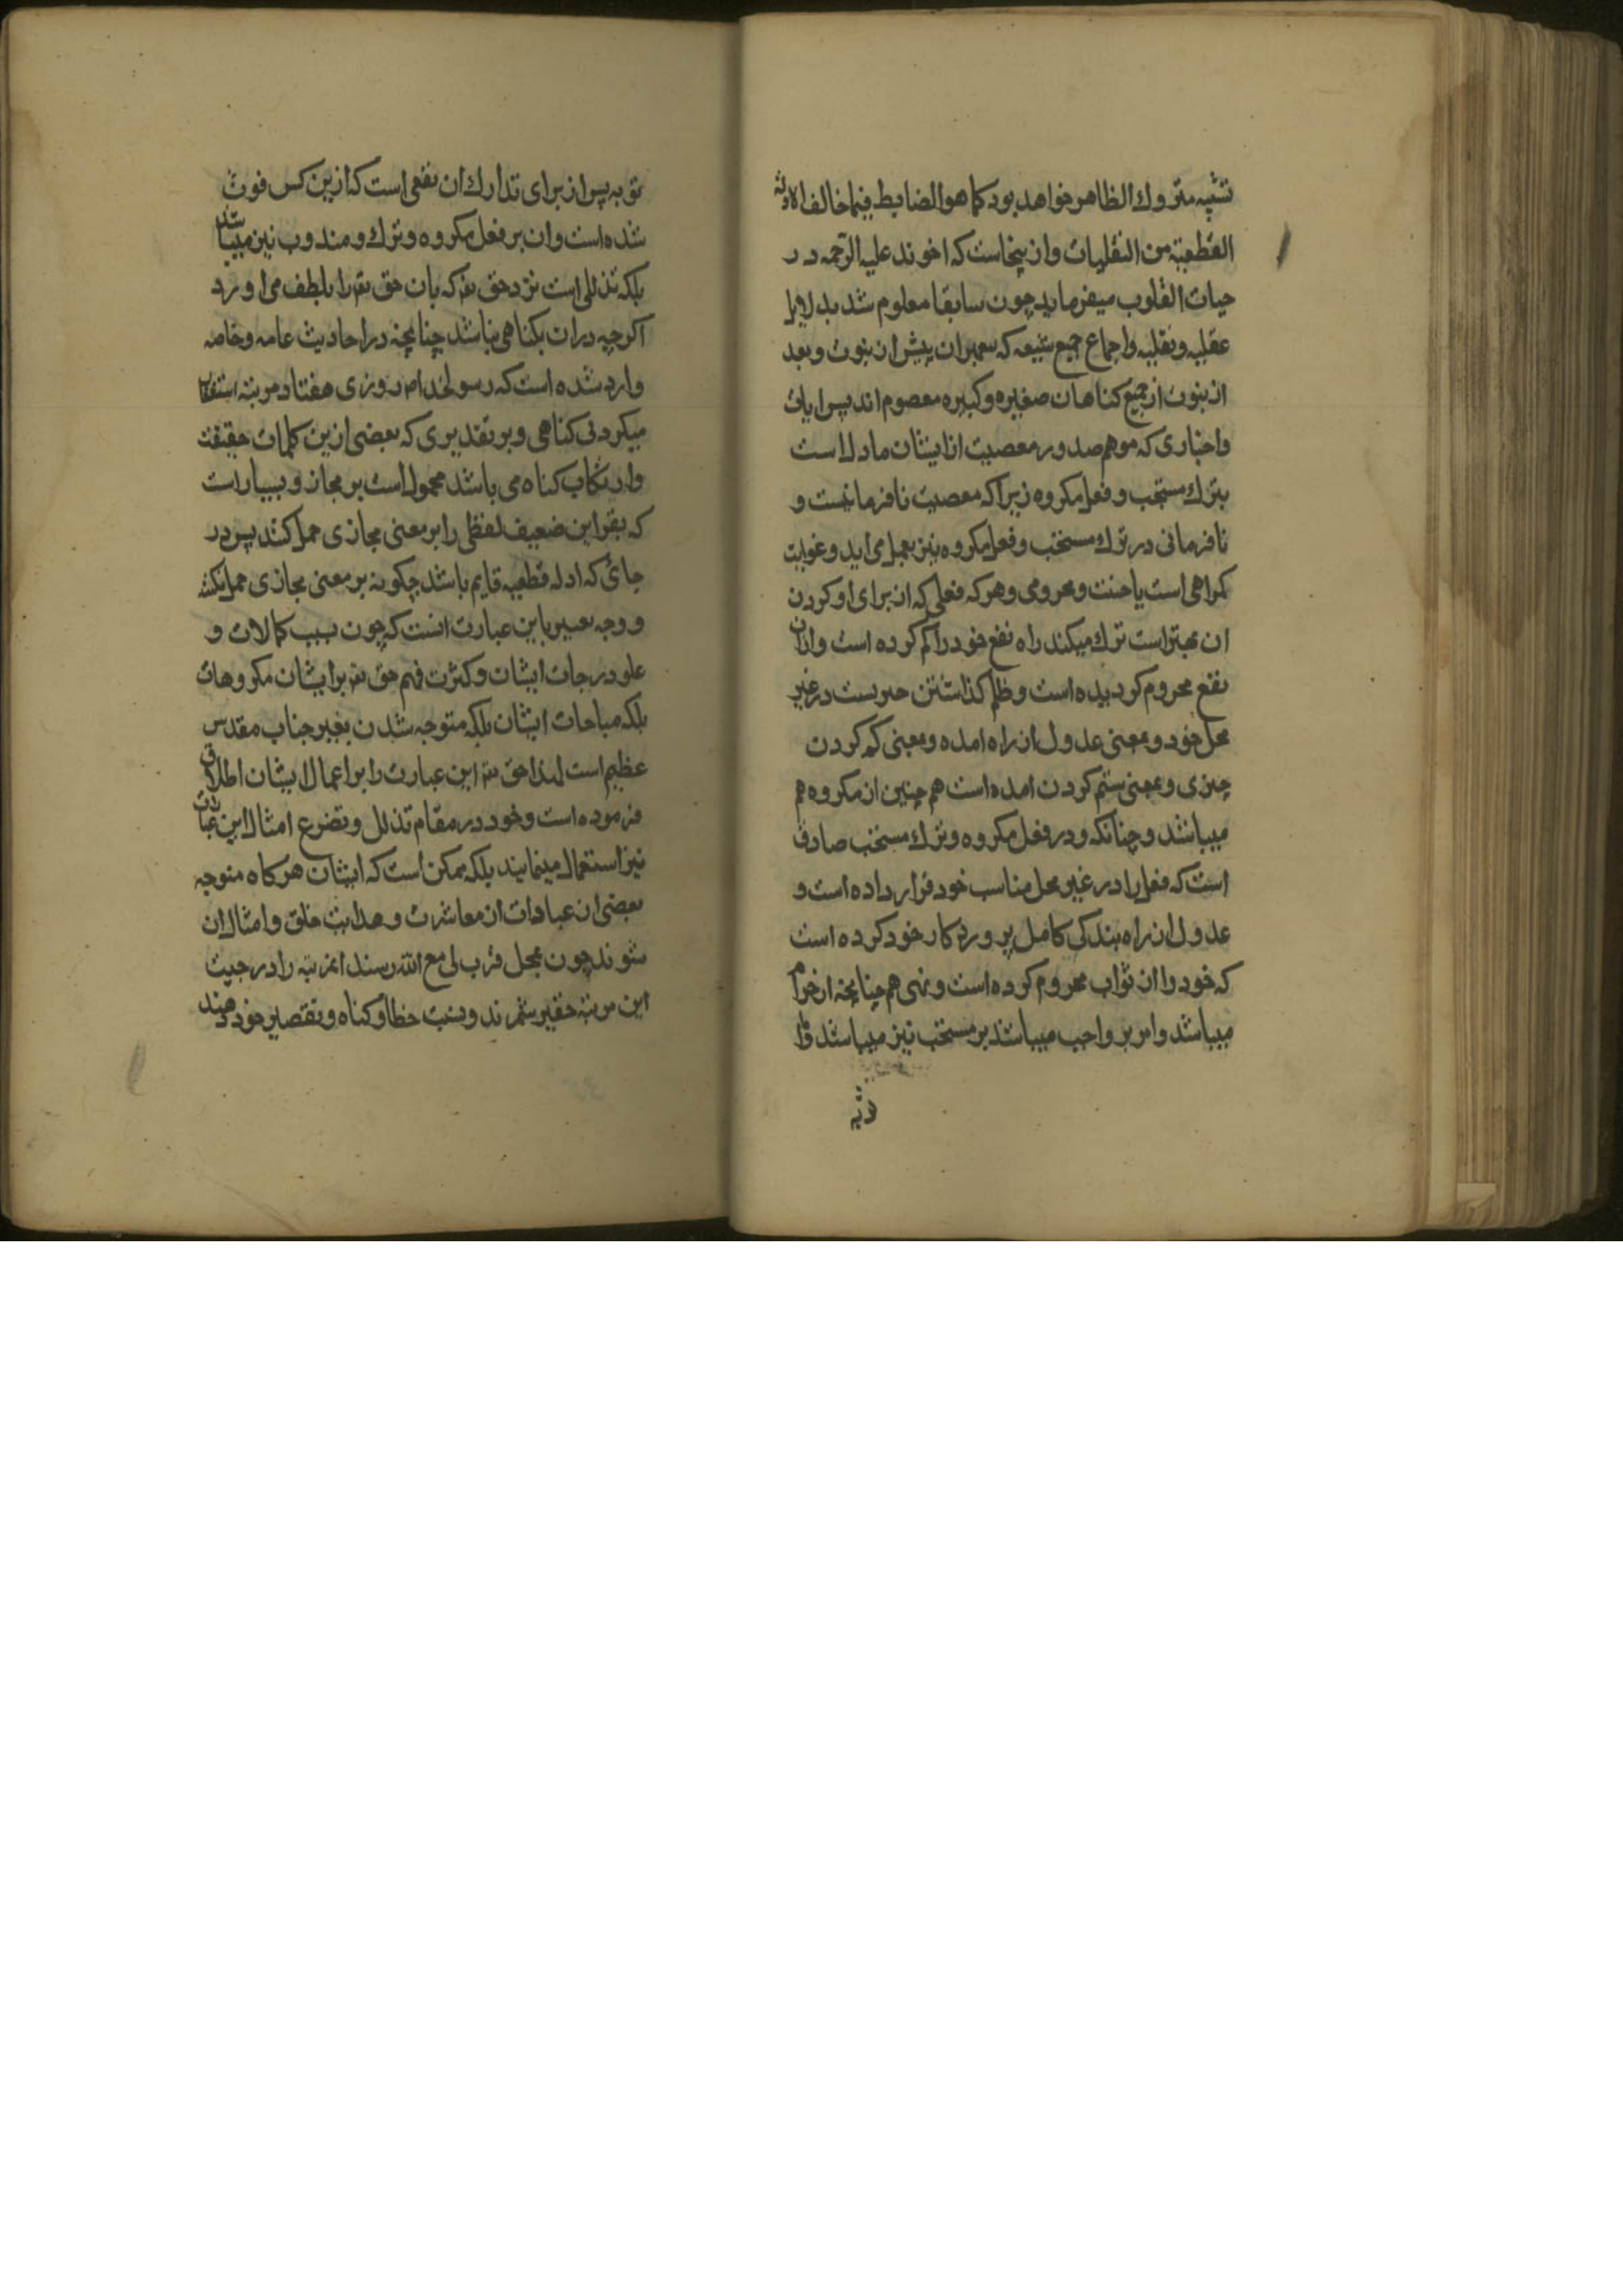 تشبیه متروك الظاهر خواهد بود كما هو الضابط فیما خالف الادلة
القطعیة من النقلیات و ازینجاست که اخوند علیه الرحمه در
حیات القلوب میفرماید چون سابقا معلوم شد بدلایل
عقلیه و نقلیه و اجماع جمیع شیعه که پیغمبران پیش از نبوت و بعد
از نبوت از جمیع کناهان صغیره و کبیره معصوم اند پس ایات
و اخباری که موهم صدور معصیت از ایشان ماول است
بترك مستحب و فعل مکروه زیرا که معصیت نافرمانیست و
نافرمانی در ترك مستحب و فعل مکروه نیز بعمل می اید و غوایت
کمراهی است یا خیبت و محرومی و هر که فعلی که از برای او کردن
ان بهتر است ترك میکند راه نفع خود را کم کرده است و ازان
نفع محروم کردیده است و ظلم کذاشتن چیزیست در غیر
محل خود و بمعنی عدول از راه امده و بمعنی کم کردن
چیزی و بمعنی ستم کردن امده است هم چنین از مکروه هم
میباشد و چنانکه در فعل مکروه و ترك مستحب صادق
است که فعل را در غیر محل مناسب خود قرار داده است و
عدول از راه بندکی کامل پروردکار خود کرده است
که خود را از ثواب محروم کرده است و نهی هم چنانچه از حرام
میباشد و امر بر واجب میباشد بر مستحب نیز میباشد و اما
توبه
توبه پس از برای تدارك ان نفعی است که ازین کس فوت
شده است و ان بر فعل مکروه و ترك مندوب نیز میباشد
بلکه تذللی است نزد حق تع که بان حق تع را بلطف می اورد
اکرچه دران بکناهی نباشد چنانچه در احادیث عامه و خاصه
وارد شده است که رسولخدا ص روزی هفتاد مرتبه استغفار
میکرد بی کناهی و بر تقدیری که بعضی ازین کلمات حقیقت
و ارتکاب کناه می باشد محمول است بر مجاز و بسیار است
که بقراین ضعیف لفظی را بر معنی مجازی حمل کنند پس در
جائی که ادله قطعیه قایم باشد چکونه بر معنی مجازی حمل نکنند
و وجه تعبیر باین عبارت انست که چون بسبب کمالات و
علو درجات ایشان و کثرت فهم حق تع بر ایشان مکروهات
بلکه مباحات ایشان بلکه متوجه شدن بغیر جناب مقدس
عظیم است لهذا حق تع این عبارت را بر اعمال ایشان اطلاق
فرموده است و خود در مقام تذلل و تضرع امثال این عبارات
نیز استعمال مینمایند بلکه ممکن است که ایشان هرکاه متوجه
بعضی از عبادات از معاشرت و هدایت خلق و امثال ان
شوند چون بمحل قرب لی مع الله رسند ان مرتبه را در جنب
این مرتبه حقیر شمرند و نسبت خطا و کناه و تقصیر خود دهند